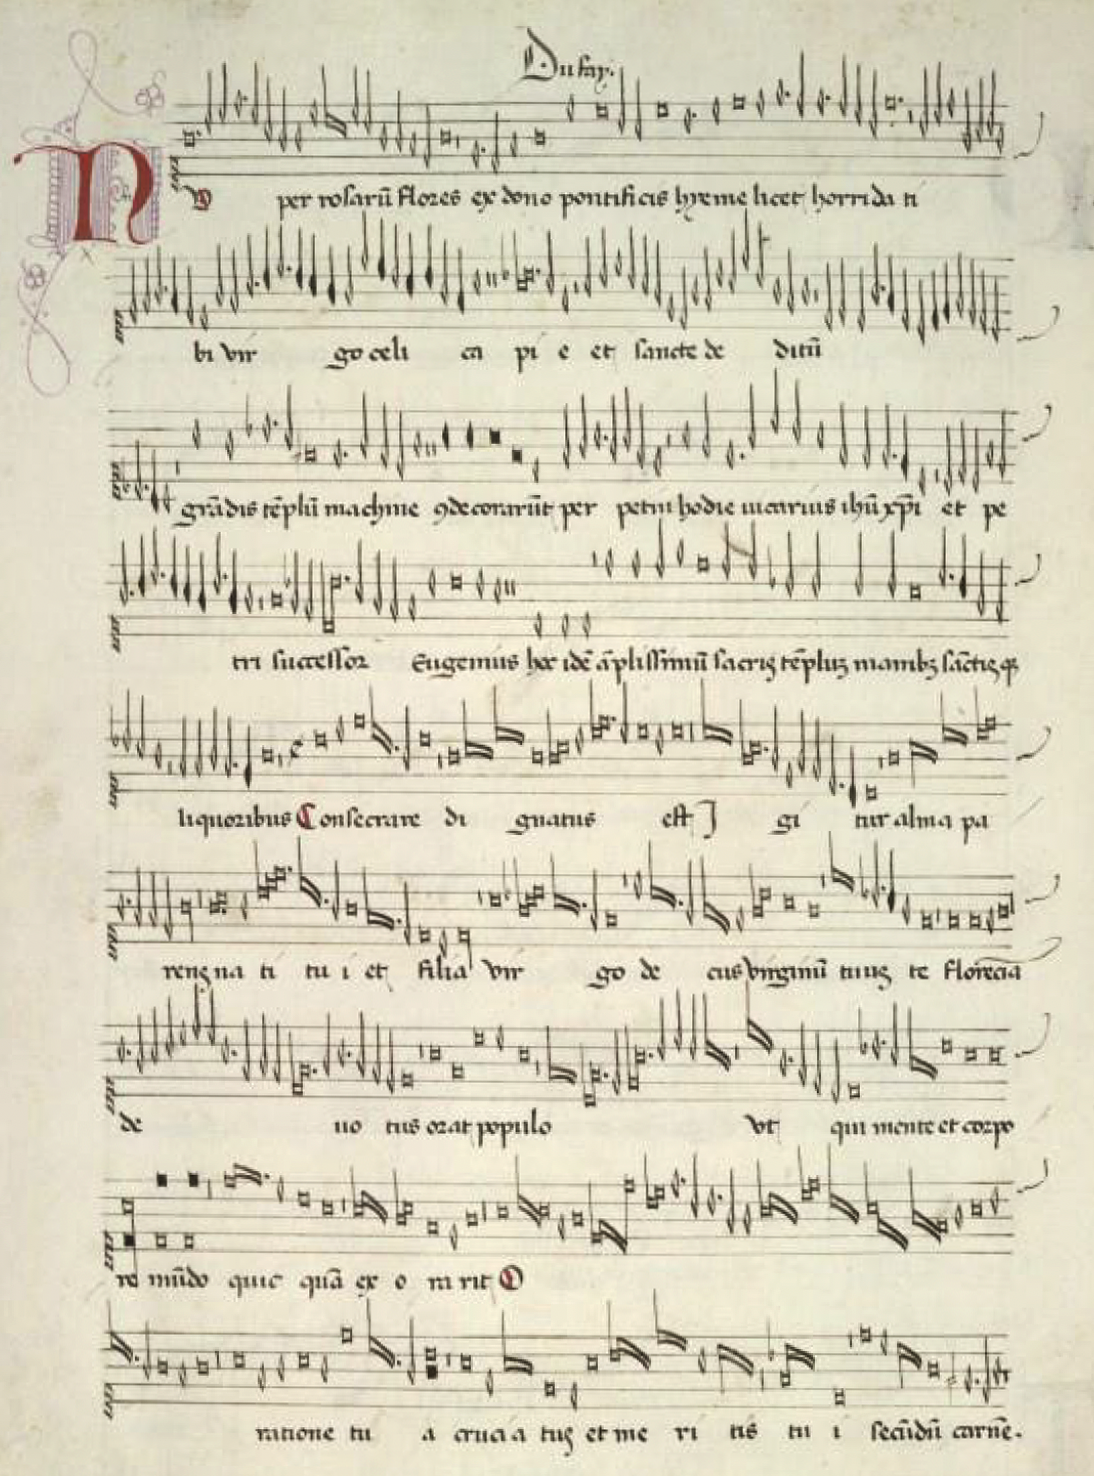 Dufay.
N per rosarū flores ex dono pontificis hyeme licet horrida ti
bi vir go celi ca pi e et sancte de ditū
grādis tēplū machine ꝯdecorarūt per petui hodie uicarius ihū xp̄i et pe
tri successor Eugenius hoc idē āplissimū sacris tēplū manibꝫ sāctisqꝫ
liquoribus Consecrare di gnatus est J gi tur alma pa
rens na ti tu i et filia vir go de cus virginū tuus te florēcia
de uo tus orat populo vt qui mente et corpo
re mūdo quic quā ex o ra rit O
ratione tu a crucia a tus et me ri tis tu i secūdū carnē.